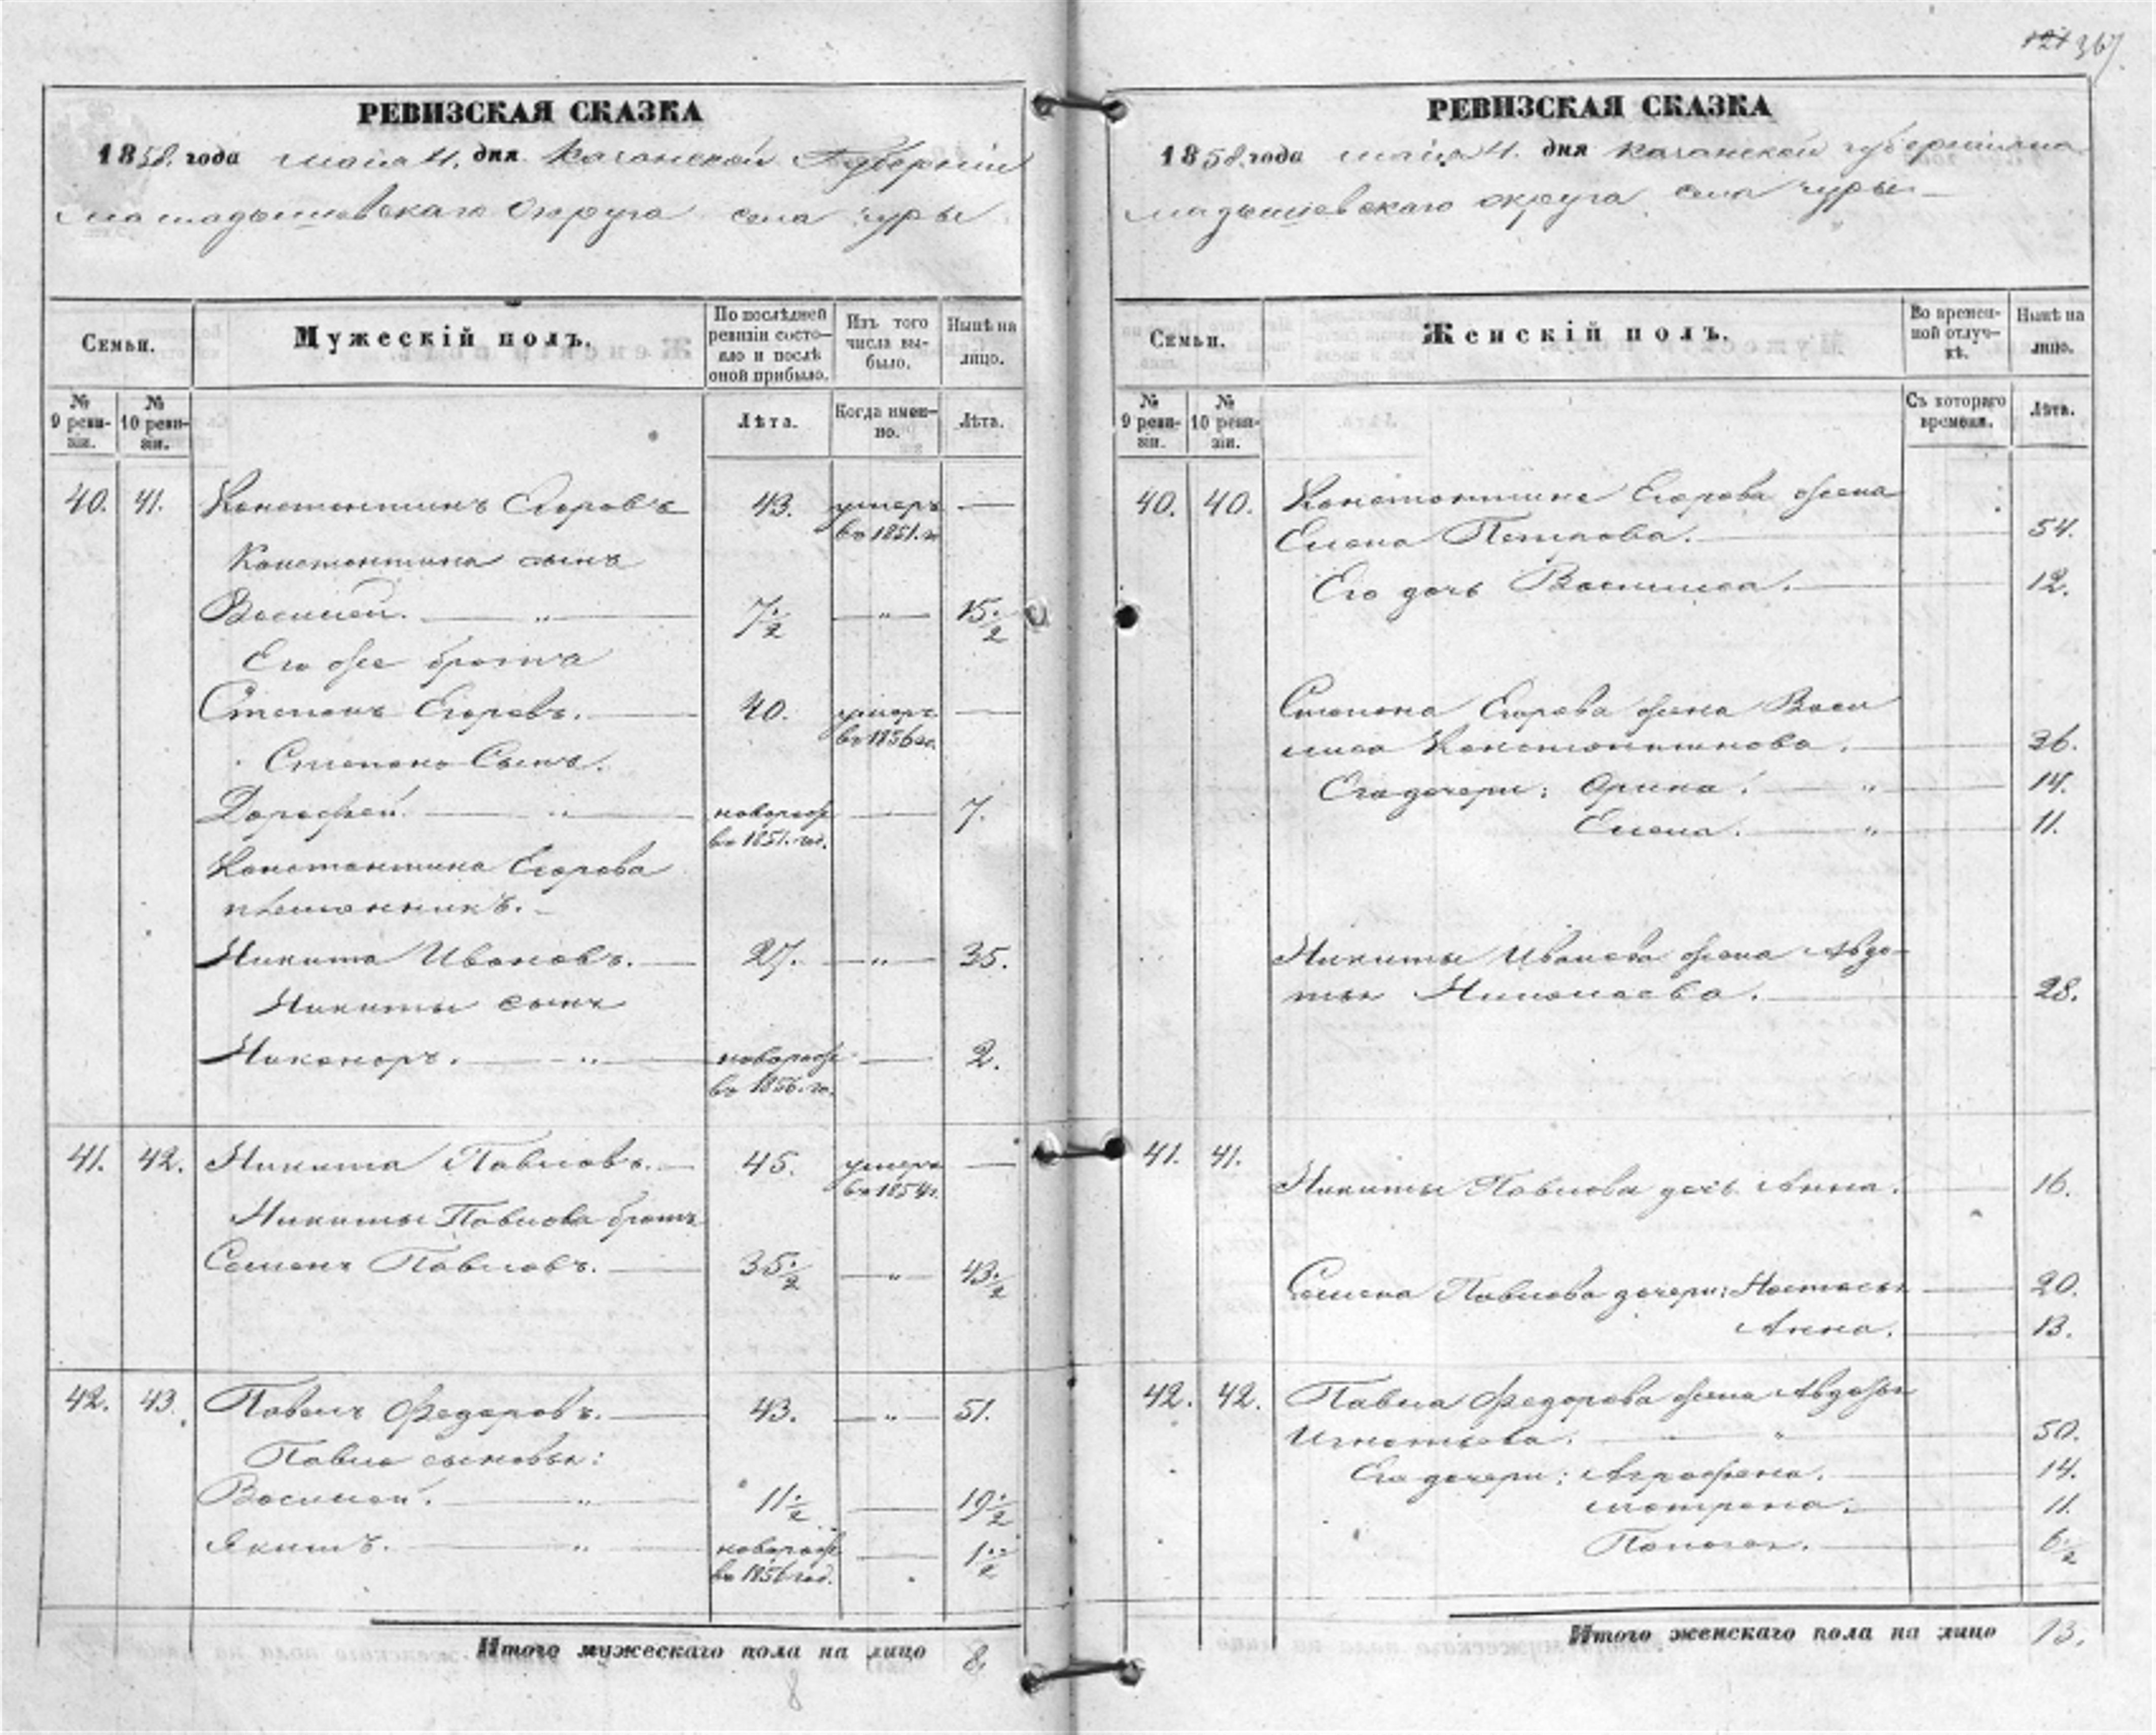 121 367
РЕВИЗСКАЯ СКАЗКА
1858. года маія 4. дня Казанской Губерніи
мамадышевскаго Округа села чуры
Семьи.
Мужескій полъ.
По послѣдней ревизіи состояло и послѣ оной прибыло.
Изъ того числа выбыло.
Нынѣ на лицо.
№ 9 ревизіи.
№ 10 ревизіи.
Лѣта.
Когда именно.
Лѣта.
40. 41. Константинъ Егоровъ 43. умеръ —
въ 1851. г.
Константина сынъ
Василей. — „ — 7 1/2 — „ — 15 1/2
Его же братъ
Степанъ Егоровъ. — 40. умеръ —
въ 1856 го.
Степана Сынъ.
Дорофей. — „ — новорож — 7.
въ 1851. год.
Константина Егорова
племянникъ. —
Никита Ивановъ. — 27. — „ — 35.
Никиты сынъ
Никаноръ. — „ — новорож — 2.
въ 1856. го.
41. 42. Никита Павловъ. — 45. умеръ —
въ 1854 г.
Никиты Павлова братъ
Семенъ Павловъ. — 35 1/2 — „ — 43 1/2
42. 43. Павелъ Федоровъ. — 43. — „ — 51.
Павла сыновья:
Василей. — „ — 11 1/2 — 19 1/2
Якимъ. — „ — новорож — 1 1/2
въ 1856 год.
Итого мужескаго пола на лицо 8.
8
РЕВИЗСКАЯ СКАЗКА
1858. года маія 4. дня казанской губерніи ма
мадышевскаго округа села чуры —
Семьи.
Женскій полъ.
Во временной отлучкѣ.
Нынѣ на лицо.
№ 9 ревизіи.
№ 10 ревизіи.
Съ котораго времени.
Лѣта.
40. 40. Константина Егорова жена
Елена Петрова. — 54.
Его дочь Василиса. — 12.
Степана Егорова жена Васи
лиса Константинова. — 36.
Его дочери: Орина. — „ — 14.
Елена. — „ — 11.
Никиты Иванова жена Авдо-
тья Николаева. — 28.
41. 41.
Никиты Павлова дочь Анна. — 16.
Семена Павлова дочери: Настасья — 20.
Анна. — 13.
42. 42. Павла Федорова жена Авдотья
Игнатьева. — „ — 50.
Его дочери: Аграфена. — 14.
матрена. — 11.
6 1/2
Итого женскаго пола на лицо 13.